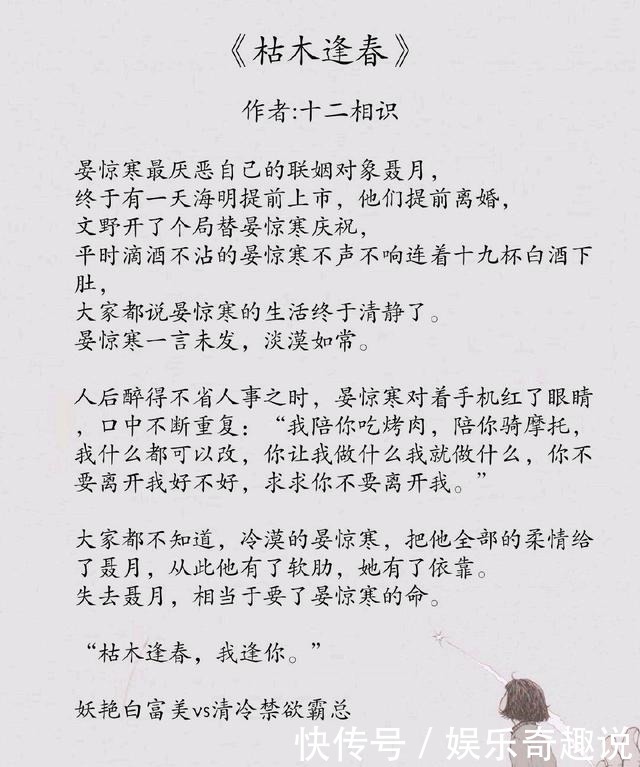 《枯木逢春》
作者:十二相识
晏惊寒最厌恶自己的联姻对象聂月，
终于有一天海明提前上市，他们提前离婚，
文野开了个局替晏惊寒庆祝，
平时滴酒不沾的晏惊寒不声不响连着十九杯白酒下
肚，
大家都说晏惊寒的生活终于清静了。
晏惊寒一言未发，淡漠如常。
人后醉得不省人事之时，晏惊寒对着手机红了眼睛
，口中不断重复：“我陪你吃烤肉，陪你骑摩托，
我什么都可以改，你让我做什么我就做什么，你不
要离开我好不好，求求你不要离开我。”
大家都不知道，冷漠的晏惊寒，把他全部的柔情给
了聂月，从此他有了软肋，她有了依靠。
失去聂月，相当于要了晏惊寒的命。
“枯木逢春，我逢你。”
妖艳白富美vs清冷禁欲霸总
快传号 / 娱乐奇趣说